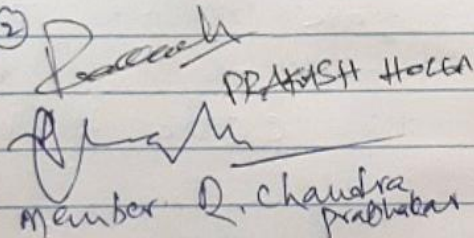 ②
PRAKASH HOLLA
Member R. Chandra
prabhakar